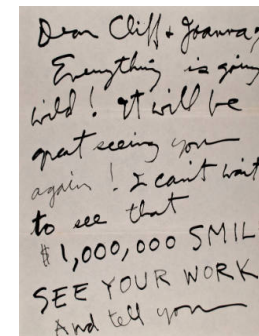 Dear Cliff & Joanna,
Everything is going
wild! It will be
great seeing you
again! I can't wait
to see that
$1,000,000 SMIL
SEE YOUR WORK
And tell you